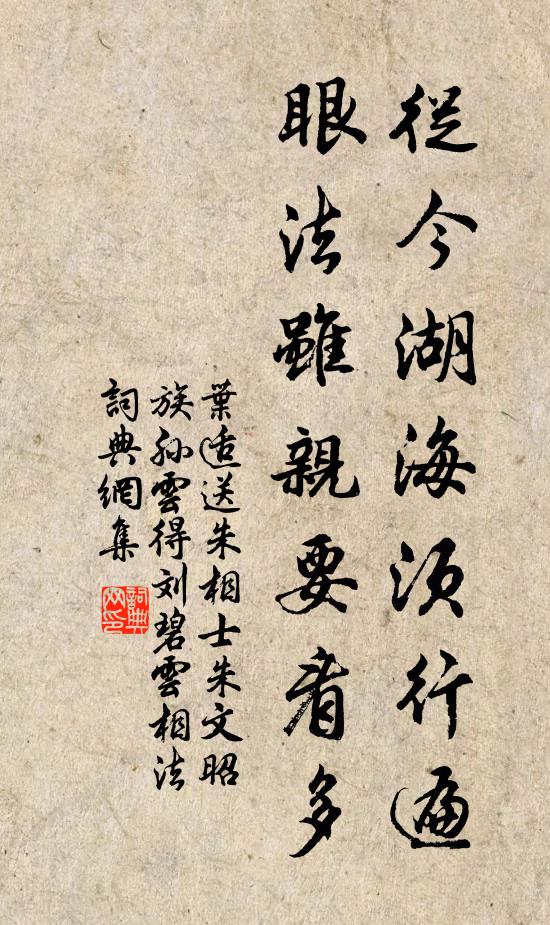 從今湖海須行遍
眼法雖親要看多
葉適送朱相士朱文昭
族孫雲得刘碧雲相法
詞典網集
詞典網印